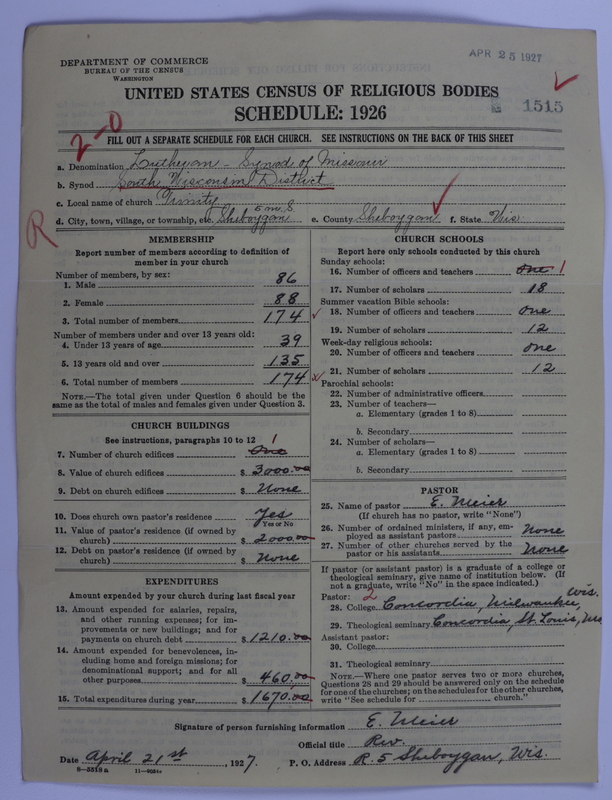 DEPARTMENT OF COMMERCE
BUREAU OF THE CENSUS
WASHINGTON
APR 25 1927
UNITED STATES CENSUS OF RELIGIOUS BODIES
SCHEDULE: 1926
1515
2-0
FILL OUT A SEPARATE SCHEDULE FOR EACH CHURCH. SEE INSTRUCTIONS ON THE BACK OF THIS SHEET
a. Denomination Lutheran - Synod of Missouri
b. Synod South Wisconsin District
c. Local name of church Trinity
d. City, town, village, or township, etc. Sheboygan e. County Sheboygan f. State Wis
R
MEMBERSHIP
Report number of members according to definition of
member in your church
Number of members, by sex:
1. Male 86
2. Female 88
3. Total number of members 174
Number of members under and over 13 years old:
4. Under 13 years of age 39
5. 13 years old and over 135
6. Total number of members 174
NOTE.—The total given under Question 6 should be
same as the total of males and females given under Question 3.
CHURCH BUILDINGS
See instructions, paragraphs 10 to 12
7. Number of church edifices One 1
8. Value of church edifices $ 3000.00
9. Debt on church edifices $ None
10. Does church own pastor's residence Yes
Yes or No
11. Value of pastor's residence (if owned by
church) $ 2000.00
12. Debt on pastor's residence (if owned by
church) $ None
EXPENDITURES
Amount expended by your church during last fiscal year
13. Amount expended for salaries, repairs,
and other running expenses; for im-
provements or new buildings; and for
payments on church debt $ 1210.00
14. Amount expended for benevolences, in-
cluding home and foreign missions; for
denominational support; and for all
other purposes $ 460.00
15. Total expenditures during year $ 1670.00
CHURCH SCHOOLS
Report here only schools conducted by this church
Sunday schools:
16. Number of officers and teachers one 1
17. Number of scholars 18
Summer vacation Bible schools:
18. Number of officers and teachers one
19. Number of scholars 12
Week-day religious schools:
20. Number of officers and teachers one
21. Number of scholars 12
Parochial schools:
22. Number of administrative officers
23. Number of teachers—
a. Elementary (grades 1 to 8)
b. Secondary
24. Number of scholars—
a. Elementary (grades 1 to 8)
b. Secondary
PASTOR
25. Name of pastor E. Meier
(If church has no pastor, write "None")
26. Number of ordained ministers, if any, em-
ployed as assistant pastors None
27. Number of other churches served by the
pastor or his assistants None
If pastor (or assistant pastor) is a graduate of a college or
theological seminary, give name of institution below. (If
not a graduate, write "No" in the space indicated.)
Pastor: 2
28. College Concordia, Milwaukee, Wis.
29. Theological seminary Concordia, St. Louis, Mo
Assistant pastor:
30. College
31. Theological seminary
NOTE.—Where one pastor serves two or more churches,
Questions 28 and 29 should be answered only on the schedule
for one of the churches; on the schedules for the other churches,
write "See schedule for church."
Signature of person furnishing information E. Meier
Official title Rev.
Date April 21st, 1927. P. O. Address R. 5 Sheboygan, Wis.
8-5519a 11-9051